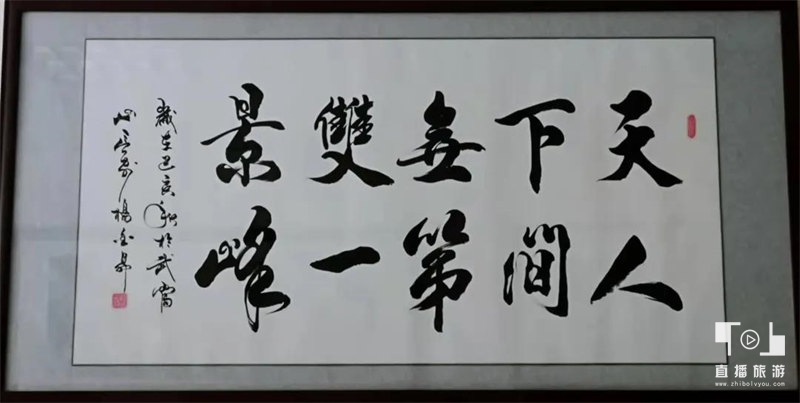 天下無雙景
人間第一峰
歲在己亥秋於武當
山 楊
直播旅游
www.zhibolvyou.com